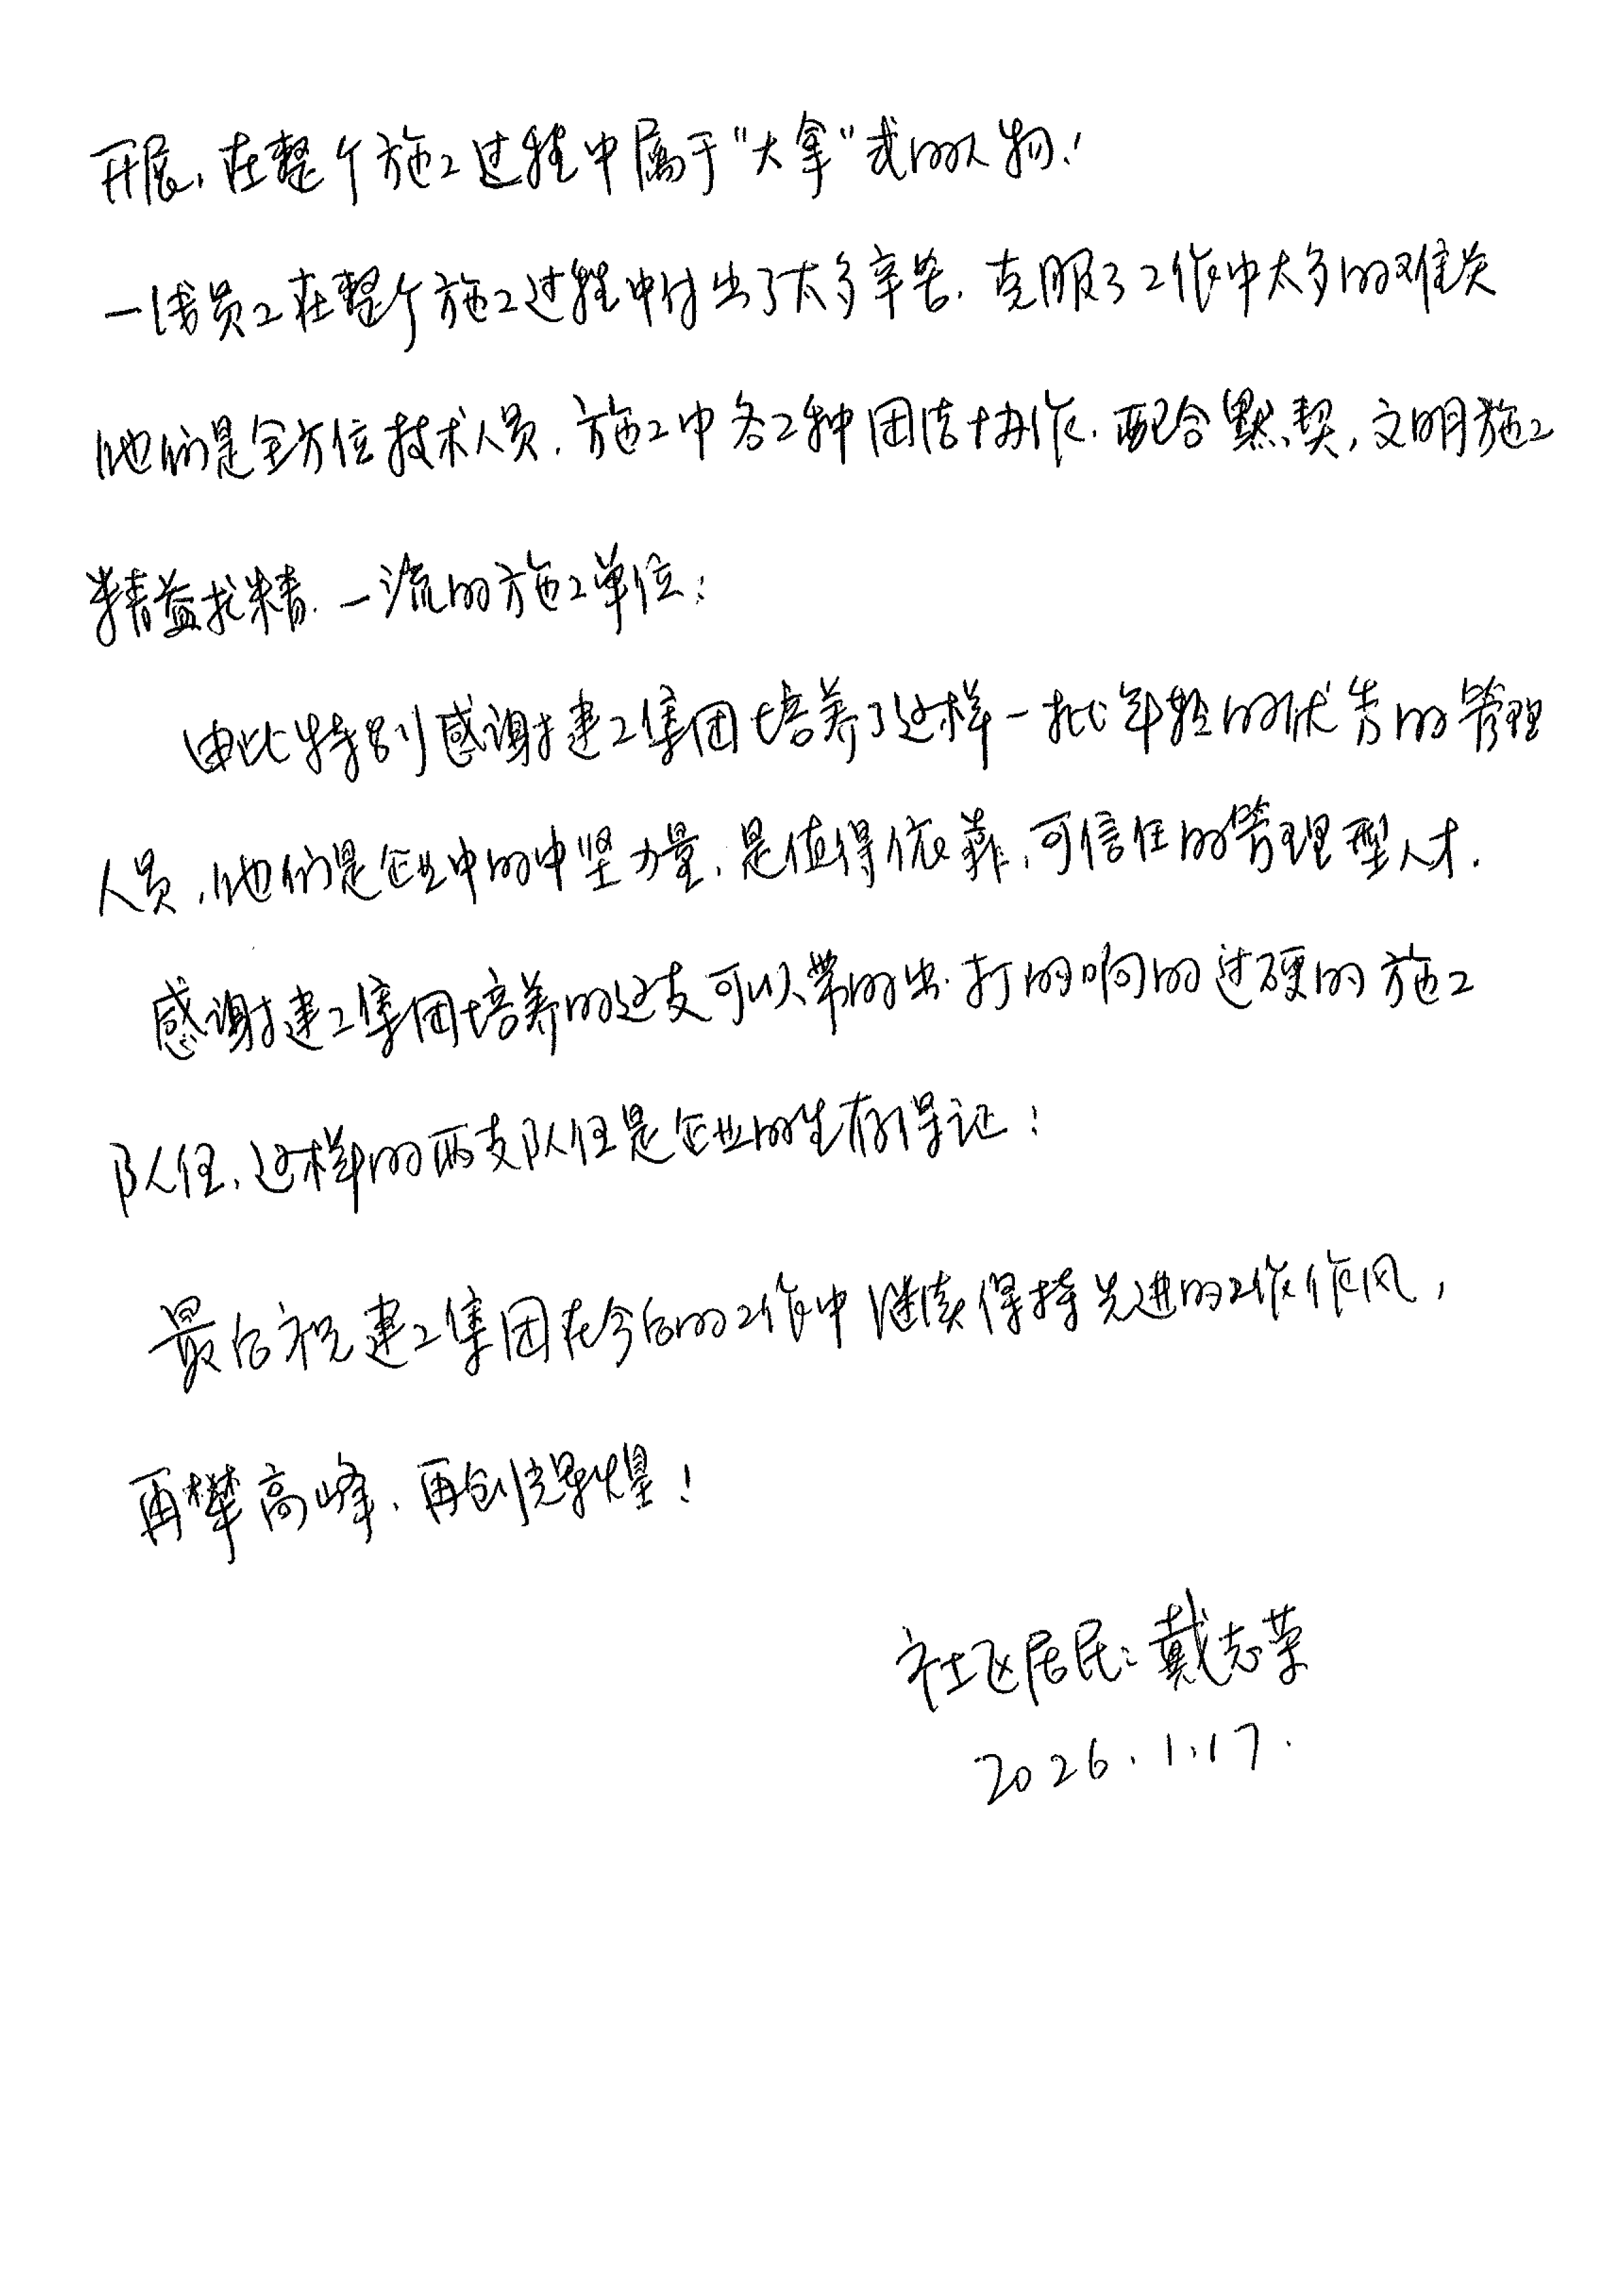 开展,在整个施工过程中属于“大拿”式的人物!
一线员工在整个施工过程中付出了太多辛苦.克服了工作中太多的难关
他们是全方位技术人员.施工中各工种团结协作.配合默契,文明施工
精益求精.一流的施工单位;
由此特别感谢建工集团培养了这样一批年轻的优秀的管理
人员,他们是企业中的中坚力量,是值得依靠,可信任的管理型人才.
感谢建工集团培养的这支可以带的出.打的响的过硬的施工
队伍,这样的两支队伍是企业的生存保证;
最后祝建工集团在今后的工作中继续保持先进的工作作风,
再攀高峰.再创辉煌!
社区居民:戴志荣
2026.1.17.